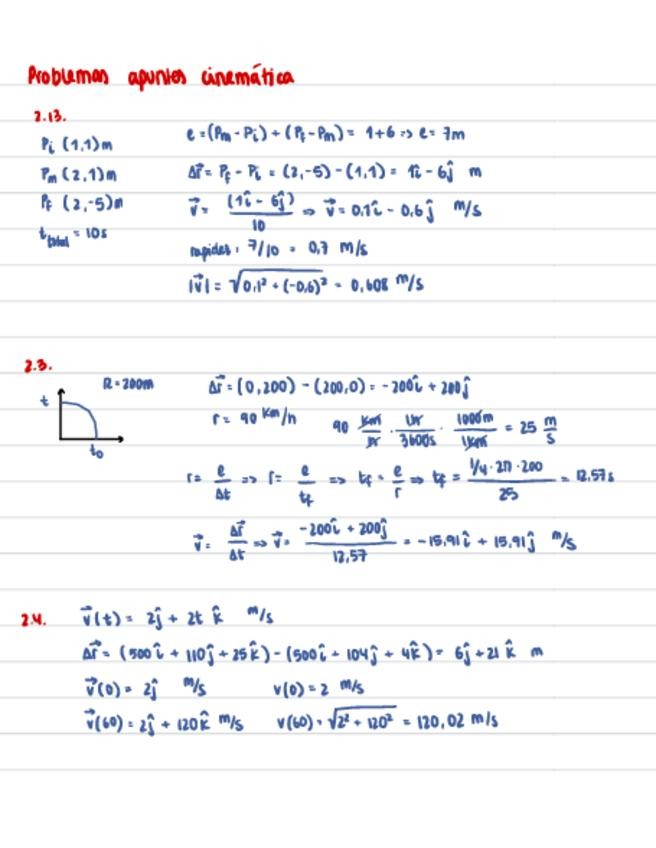 Problemas apuntes cinemática
2.13.
Pi (1,1)m
e=(Pm-Pi)+(Pf-Pm)= 1+6 => e= 7m
Pm (2,1)m
Δr⃗ = Pf - Pi = (2,-5)-(1,1)= 1î - 6ĵ m
Pf (2,-5)m
v⃗ = (1î - 6ĵ)/10 => v⃗ = 0,1î - 0,6ĵ m/s
t total = 10s
rapidez: 7/10 = 0,7 m/s
|v⃗| = √(0,1² + (-0,6)²) = 0,608 m/s
2.3.
R=200m
t
t0
Δr⃗ = (0,200) - (200,0) = -200î + 200ĵ
r = 90 km/h
90 km/h · 1h/3600s · 1000m/1km = 25 m/s
r = e/Δt => r = e/tf => tf = e/r => tf = (1/4 · 2π · 200)/25 = 12,57s
v⃗ = Δr⃗/Δt => v⃗ = (-200î + 200ĵ)/12,57 = -15,91î + 15,91ĵ m/s
2.4.
v⃗(t) = 2ĵ + 2t k̂ m/s
Δr⃗ = (500î + 110ĵ + 25k̂) - (500î + 104ĵ + 4k̂) = 6ĵ + 21k̂ m
v⃗(0) = 2ĵ m/s v(0) = 2 m/s
v⃗(60) = 2ĵ + 120k̂ m/s v(60) = √(2² + 120²) = 120,02 m/s